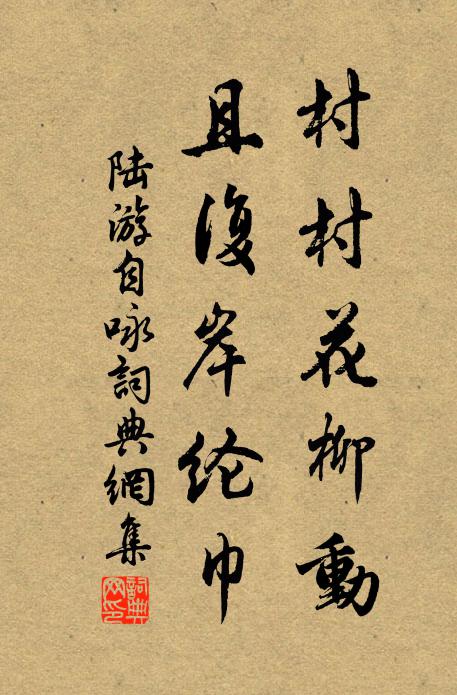 村村花柳動
且復岸纶巾
陆游自咏詞典網集
詞典網印